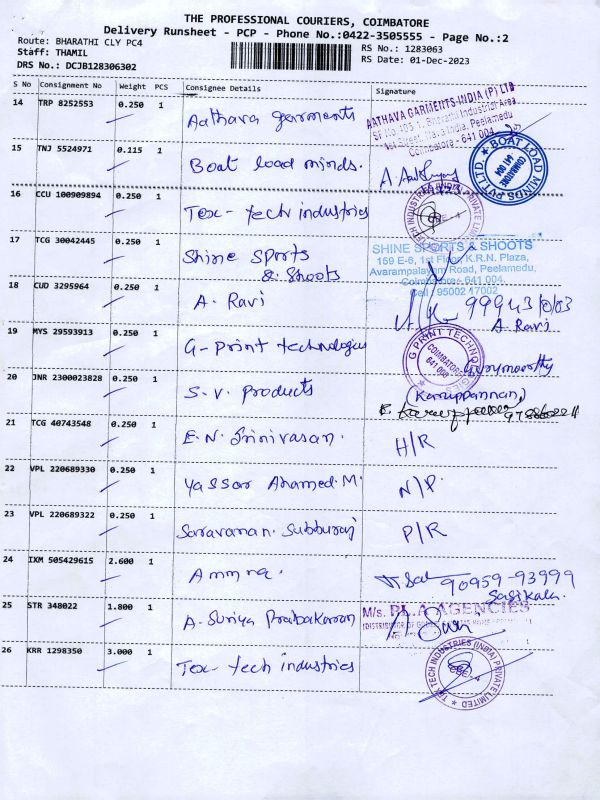 THE PROFESSIONAL COURIERS, COIMBATORE
Delivery Runsheet - PCP - Phone No.:0422-3505555 - Page No.:2
Route: BHARATHI CLY PC4
RS No.: 1283063
Staff: THAMIL
RS Date: 01-Dec-2023
DRS No.: DCJB128306302
S No Consignment No Weight PCS Consignee Details Signature
14 TRP 8252553 0.250 1 Aathava garments
AATHAVA GARMENTS INDIA (P) LTD
Bharathi Industrial Area
Peelamedu
Coimbatore - 641 004.
15 TNJ 5524971 0.115 1 Boat load minds.
BOAT LOAD MINDS PVT LTD. COIMBATORE 641 004
16 CCU 100909894 0.250 1 Tex-tech industries
17 TCG 30042445 0.250 1 Shine Sports
& Shoots
SHINE SPORTS & SHOOTS
159 E-6, 1st Floor, K.R.N. Plaza,
Avarampalayam Road, Peelamedu,
Coimbatore - 641 004.
Cell : 95002 17002
18 CUD 3295964 0.250 1 A. Ravi
A. Ravi
19 MYS 29593913 0.250 1 G-Print technologies
G PRINT TECHNOLOGIES COIMBATORE 641 004
20 JNR 2300023828 0.250 1 S.V. Products
(Karuppannan)
21 TCG 40743548 0.250 1 E.N. Srinivasan. H/R
22 VPL 220689330 0.250 1 Yassar Ahamed.M. N/P
23 VPL 220689322 0.250 1 Saravanan. Subburaj P/R
24 IXM 505429615 2.600 1 Amma. 90959-93999
Sasikala.
25 STR 348022 1.800 1 A. Suriya Prabakaran
M/s. P.L.A AGENCIES
26 KRR 1298350 3.000 1 Tex-tech industries
TEX TECH INDUSTRIES (INDIA) PRIVATE LIMITED